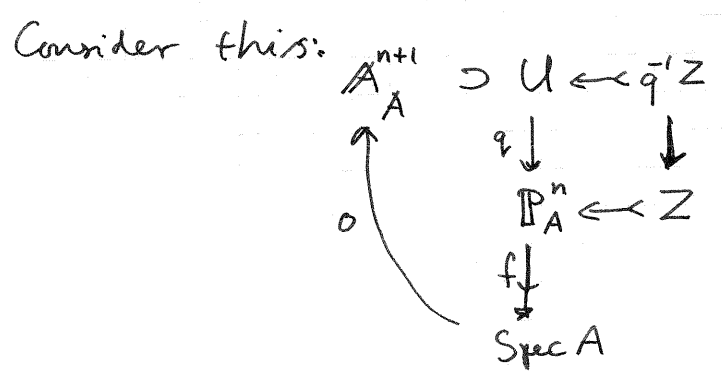 Consider this: 𝔸ⁿ⁺¹_A ⊃ U ← q⁻¹Z
q
ℙⁿ_A ← Z
0
f
Spec A